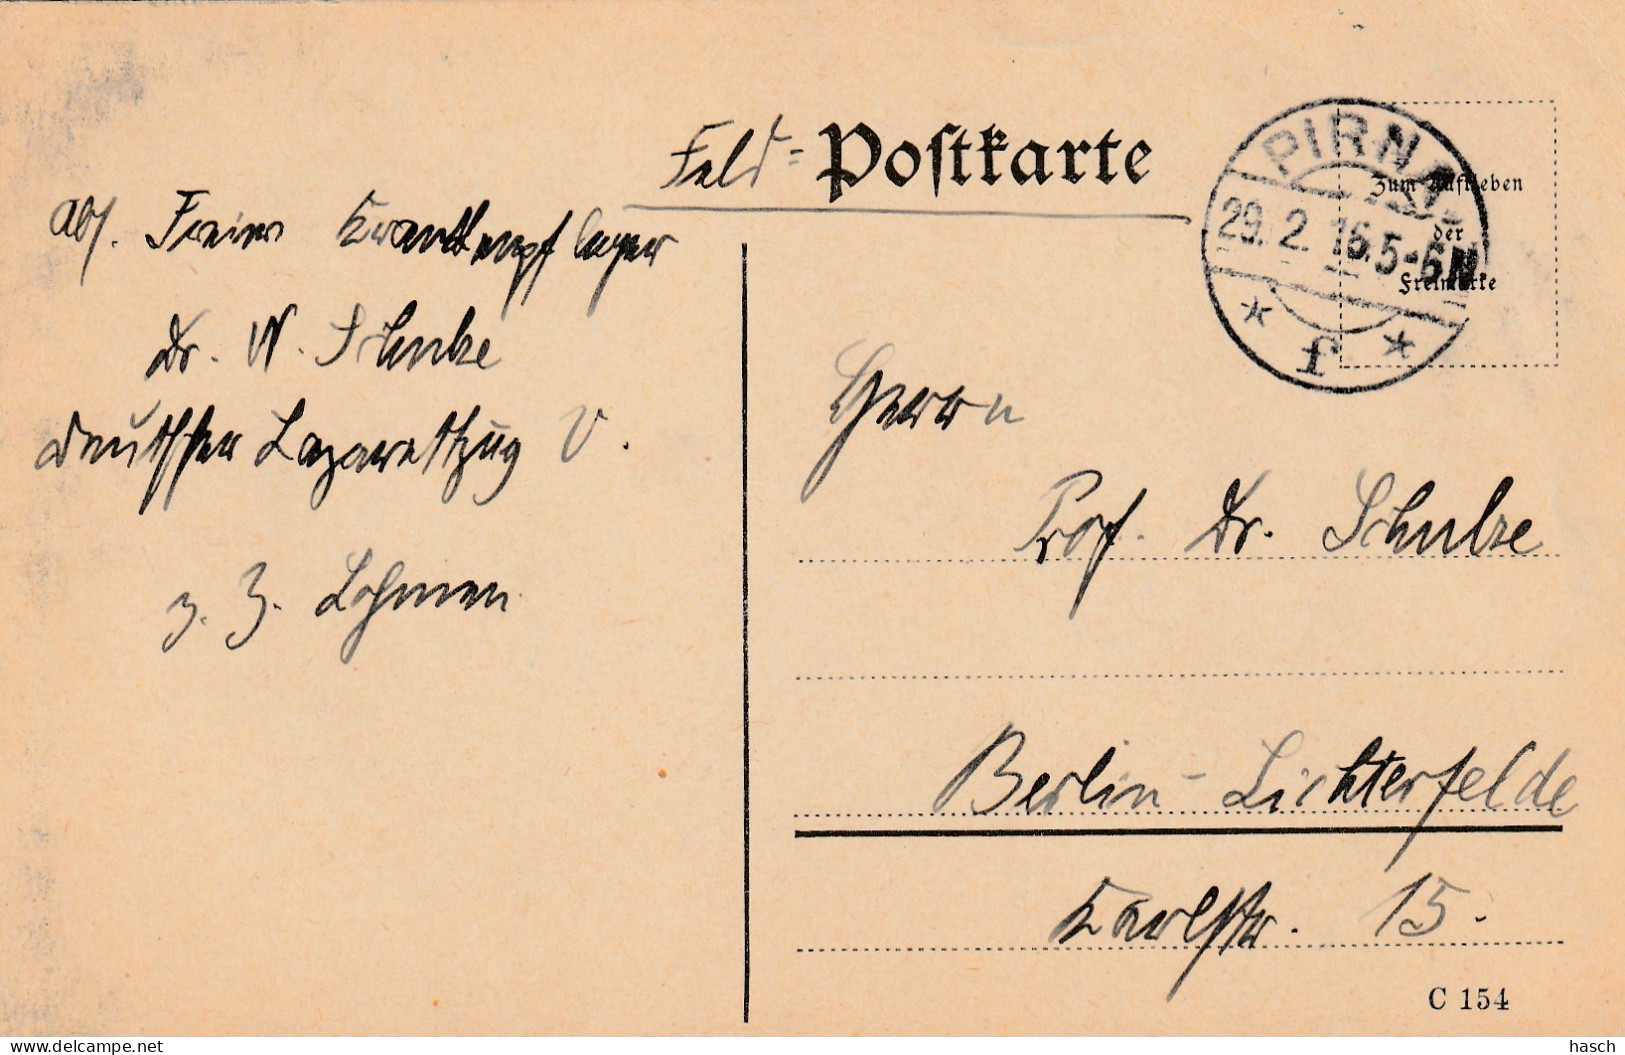 Feld=Postkarte
PIRNA
29. 2. 16. 5-6 N
* f *
Zum Aufkleben
der
Freimarke
Abs. Freiw. Krankenpfleger
Dr. W. Schulze
Deutscher Lazarettzug V.
z. Z. Lohmen
Herrn
Prof. Dr. Schulze
Berlin-Lichterfelde
Karlstr. 15.
C 154
www.delcampe.net
hasch